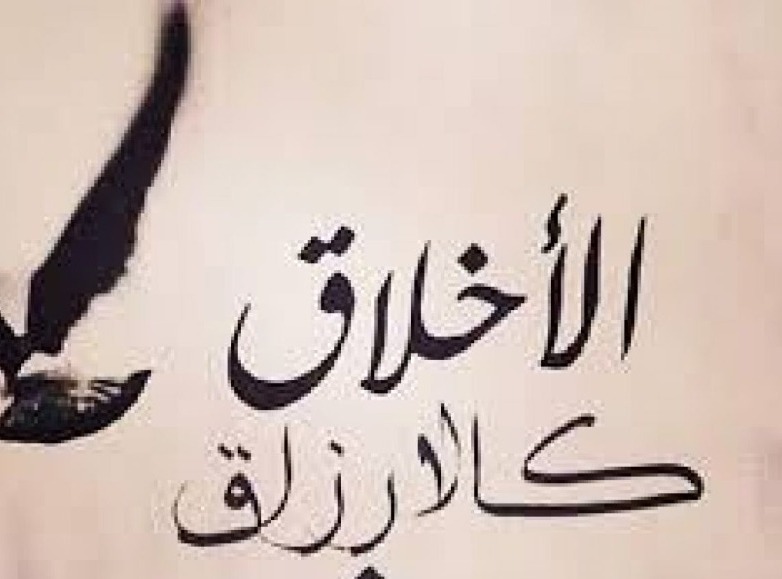 الأخلاق
كالارزاق